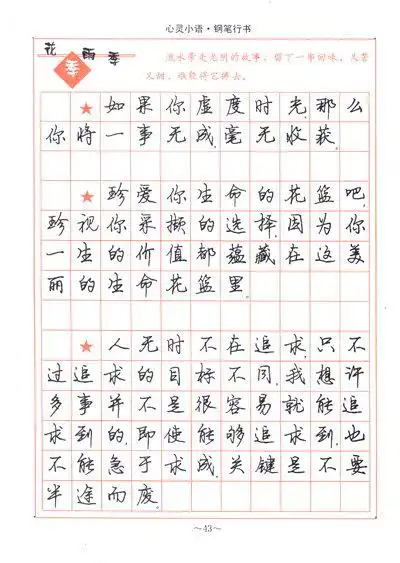 心灵小语·钢笔行书
花雨季
季
流水带走光阴的故事，留了一串回味，又苦
又甜，谁能将它拂去。
★如果你虚度时光，那么
你将一事无成，毫无收获。
★珍爱你生命的花篮吧，
珍视你采撷的选择，因为你
一生的价值都蕴藏在这美
丽的生命花篮里。
★人无时不在追求，只不
过追求的目标不同，我想许
多事并不是很容易就能追
求到的，即使能够追求到，也
不能急于求成，关键是不要
半途而废。
～43～